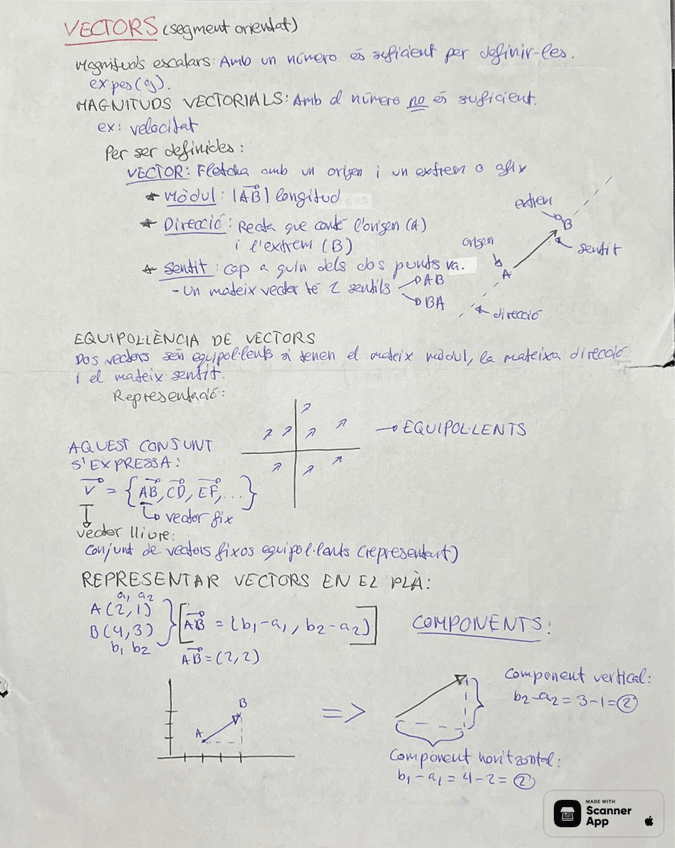 VECTORS (segment orientat)
Magnituds escalars: Amb un número és suficient per definir-les.
ex: pes (g).
MAGNITUDS VECTORIALS: Amb el número no és suficient.
ex: velocitat
Per ser definides:
VECTOR: Fletcha amb un origen i un extrem o afix
* Mòdul: |AB| longitud
* Direcció: Recta que conté l'origen (A)
i l'extrem (B)
* Sentit: cap a quin dels dos punts va.
- Un mateix vector té 2 sentits
AB
BA
extrem
B
origen
sentit
A
direcció
EQUIPOL·LÈNCIA DE VECTORS
Dos vectors sen equipol·lents si tenen el mateix mòdul, la mateixa direcció
i el mateix sentit.
Representació:
EQUIPOL·LENTS
AQUEST CONJUNT
S'EXPRESSA:
V = {AB, CD, EF, ...}
vector fix
vector lliure:
conjunt de vectors fixos equipol·lents (representant)
REPRESENTAR VECTORS EN EL PLÀ:
a₁ a₂
A (2,1)
B (4,3)
b₁ b₂
[AB = (b₁-a₁, b₂-a₂)]
AB = (2,2)
COMPONENTS:
A
B
=>
Component vertical:
b₂-a₂ = 3-1 = 2
Component horitzontal:
b₁-a₁ = 4-2 = 2
MADE WITH
Scanner
App